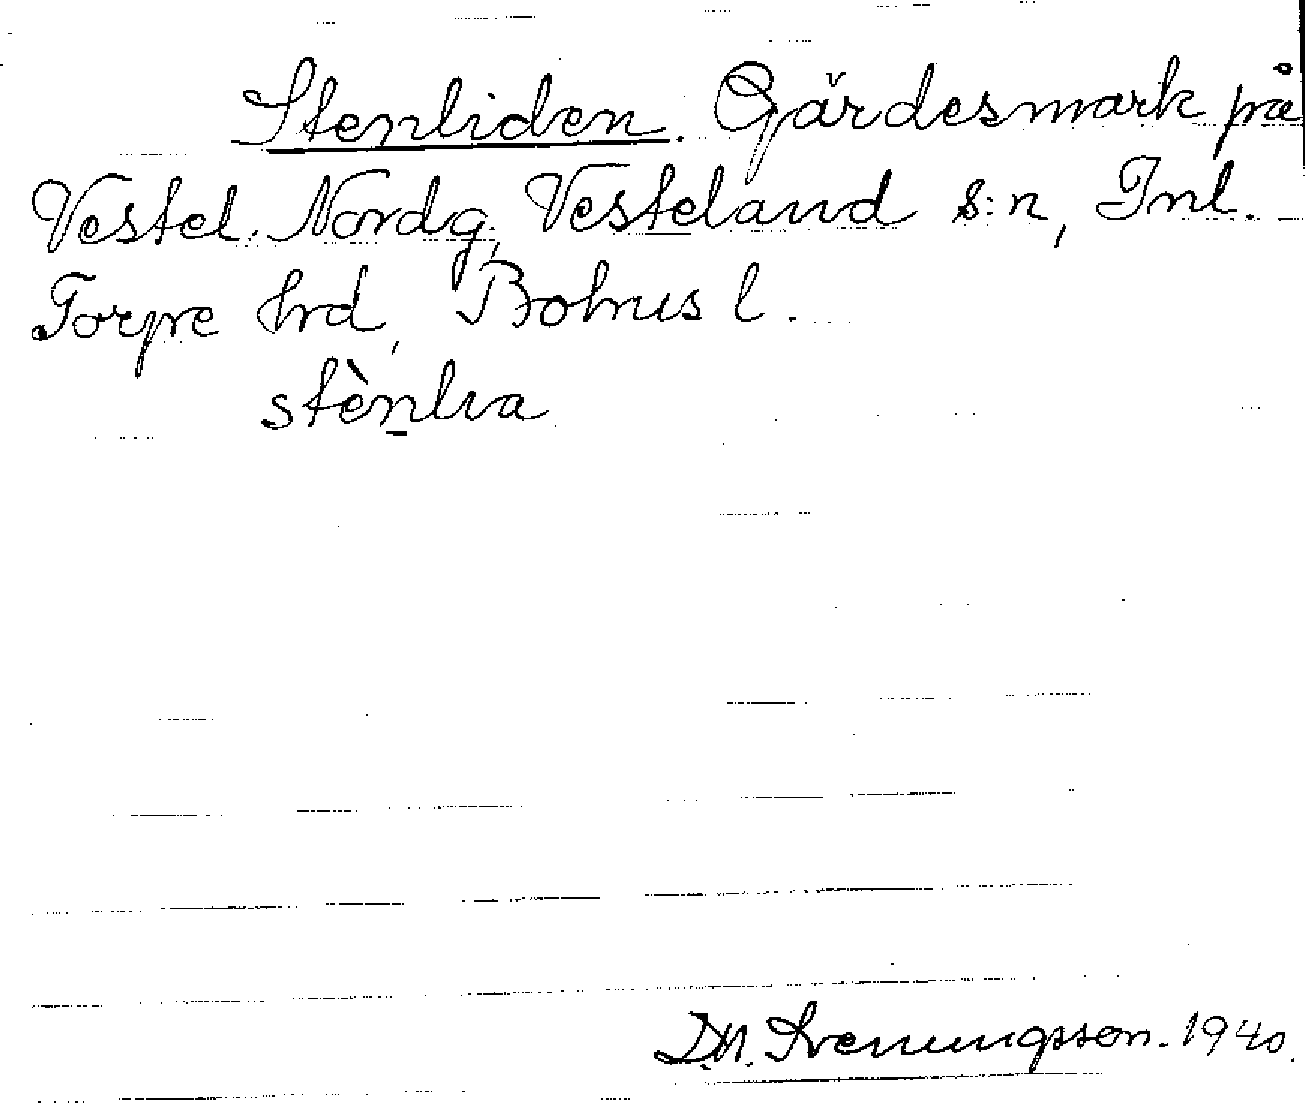 Stenliden. Gärdesmark på
Vestel. Nordg, Vesteland s:n, Inl.
Torpe hrd, Bohus l.
stènlia
D.N. Svenungsson. 1940.